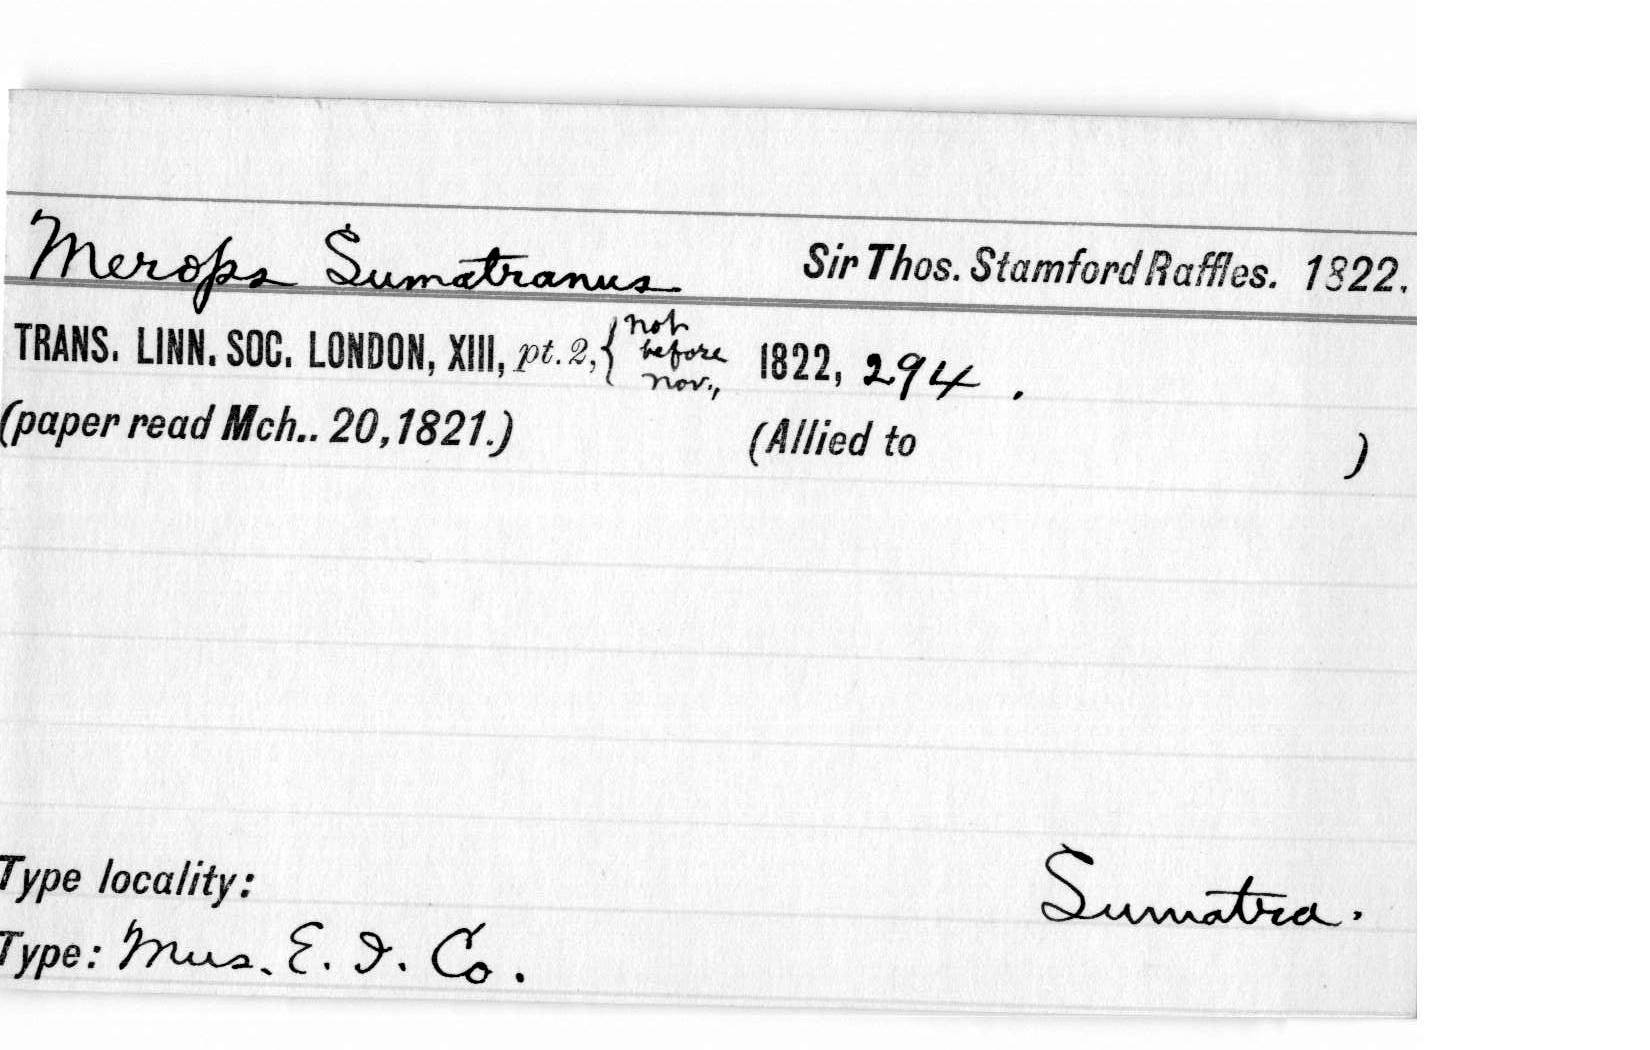 Merops Sumatranus Sir Thos. Stamford Raffles. 1822.
TRANS. LINN. SOC. LONDON, XIII, pt. 2, { not before Nov., 1822, 294 .
(paper read Mch.. 20, 1821.) (Allied to )
Type locality: Sumatra.
Type: Mus. E. I. Co.